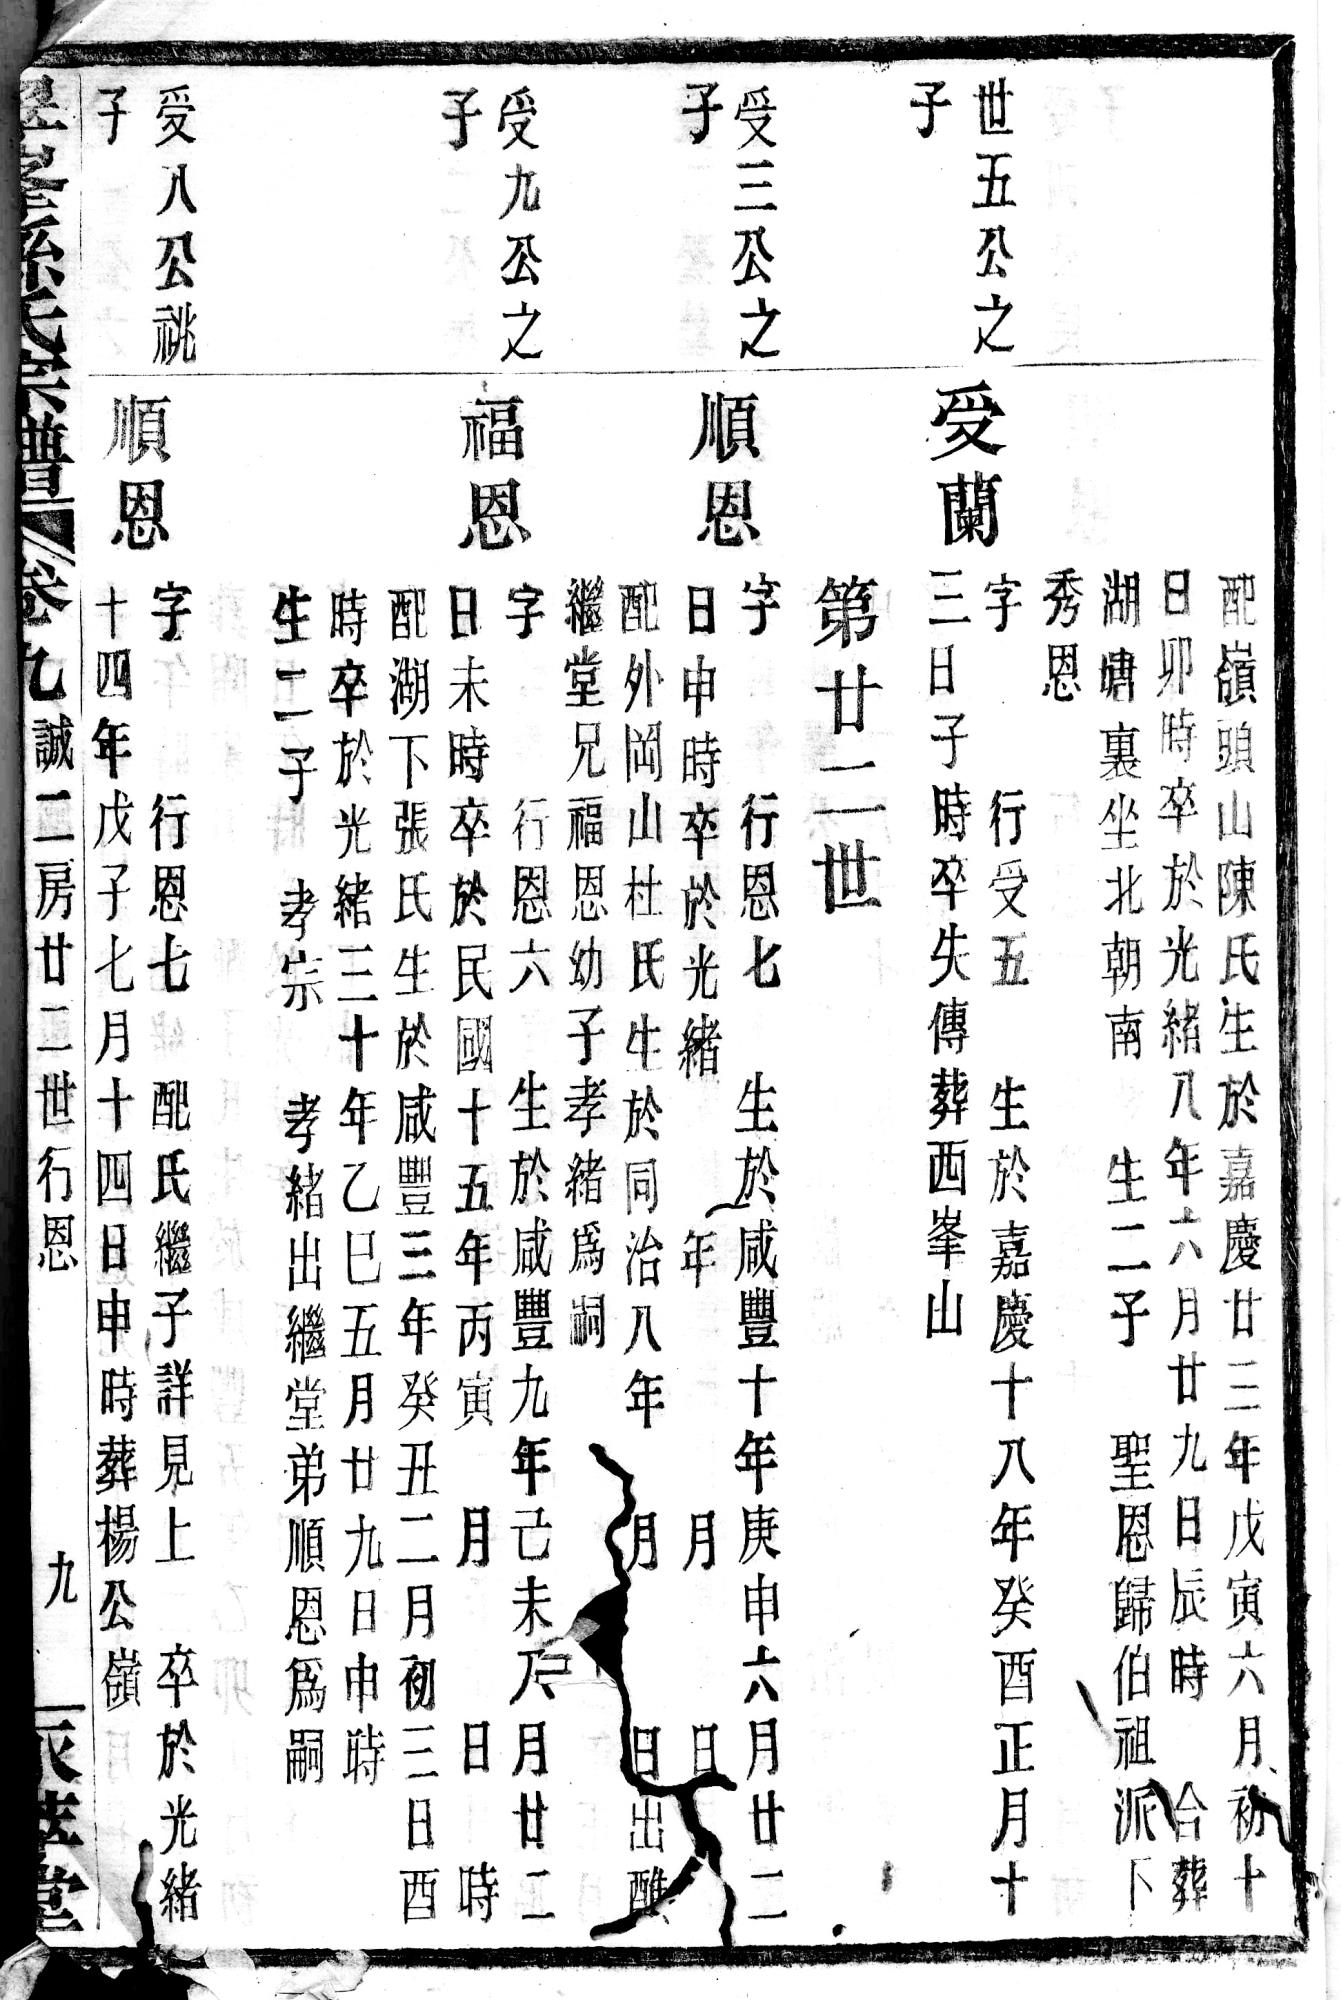 配嶺頭山陳氏生於嘉慶廿三年戊寅六月初十
日卯時卒於光緒八年六月廿九日辰時 合葬
湖塘裏坐北朝南 生二子 聖恩歸伯祖派下
秀恩
世五公之
子
受蘭
字 行受五 生於嘉慶十八年癸酉正月十
三日子時卒失傳葬西峯山
第廿二世
受三公之
子
順恩
字 行恩七 生於咸豐十年庚申六月廿二
日申時卒於光緒 年 月 日
配外岡山杜氏生於同治八年 月 日出醮
繼堂兄福恩幼子孝緒爲嗣
受九公之
子
福恩
字 行恩六 生於咸豐九年己未八月廿二
日未時卒於民國十五年丙寅 月 日 時
配湖下張氏生於咸豐三年癸丑二月初三日酉
時卒於光緒三十年乙巳五月廿九日申時
生二子 孝宗 孝緒出繼堂弟順恩爲嗣
受八公祧
子
順恩
字 行恩七 配氏繼子詳見上 卒於光緒
十四年戊子七月十四日申時葬楊公嶺
孫氏宗譜 卷九 誠二房廿二世行恩 九 堂